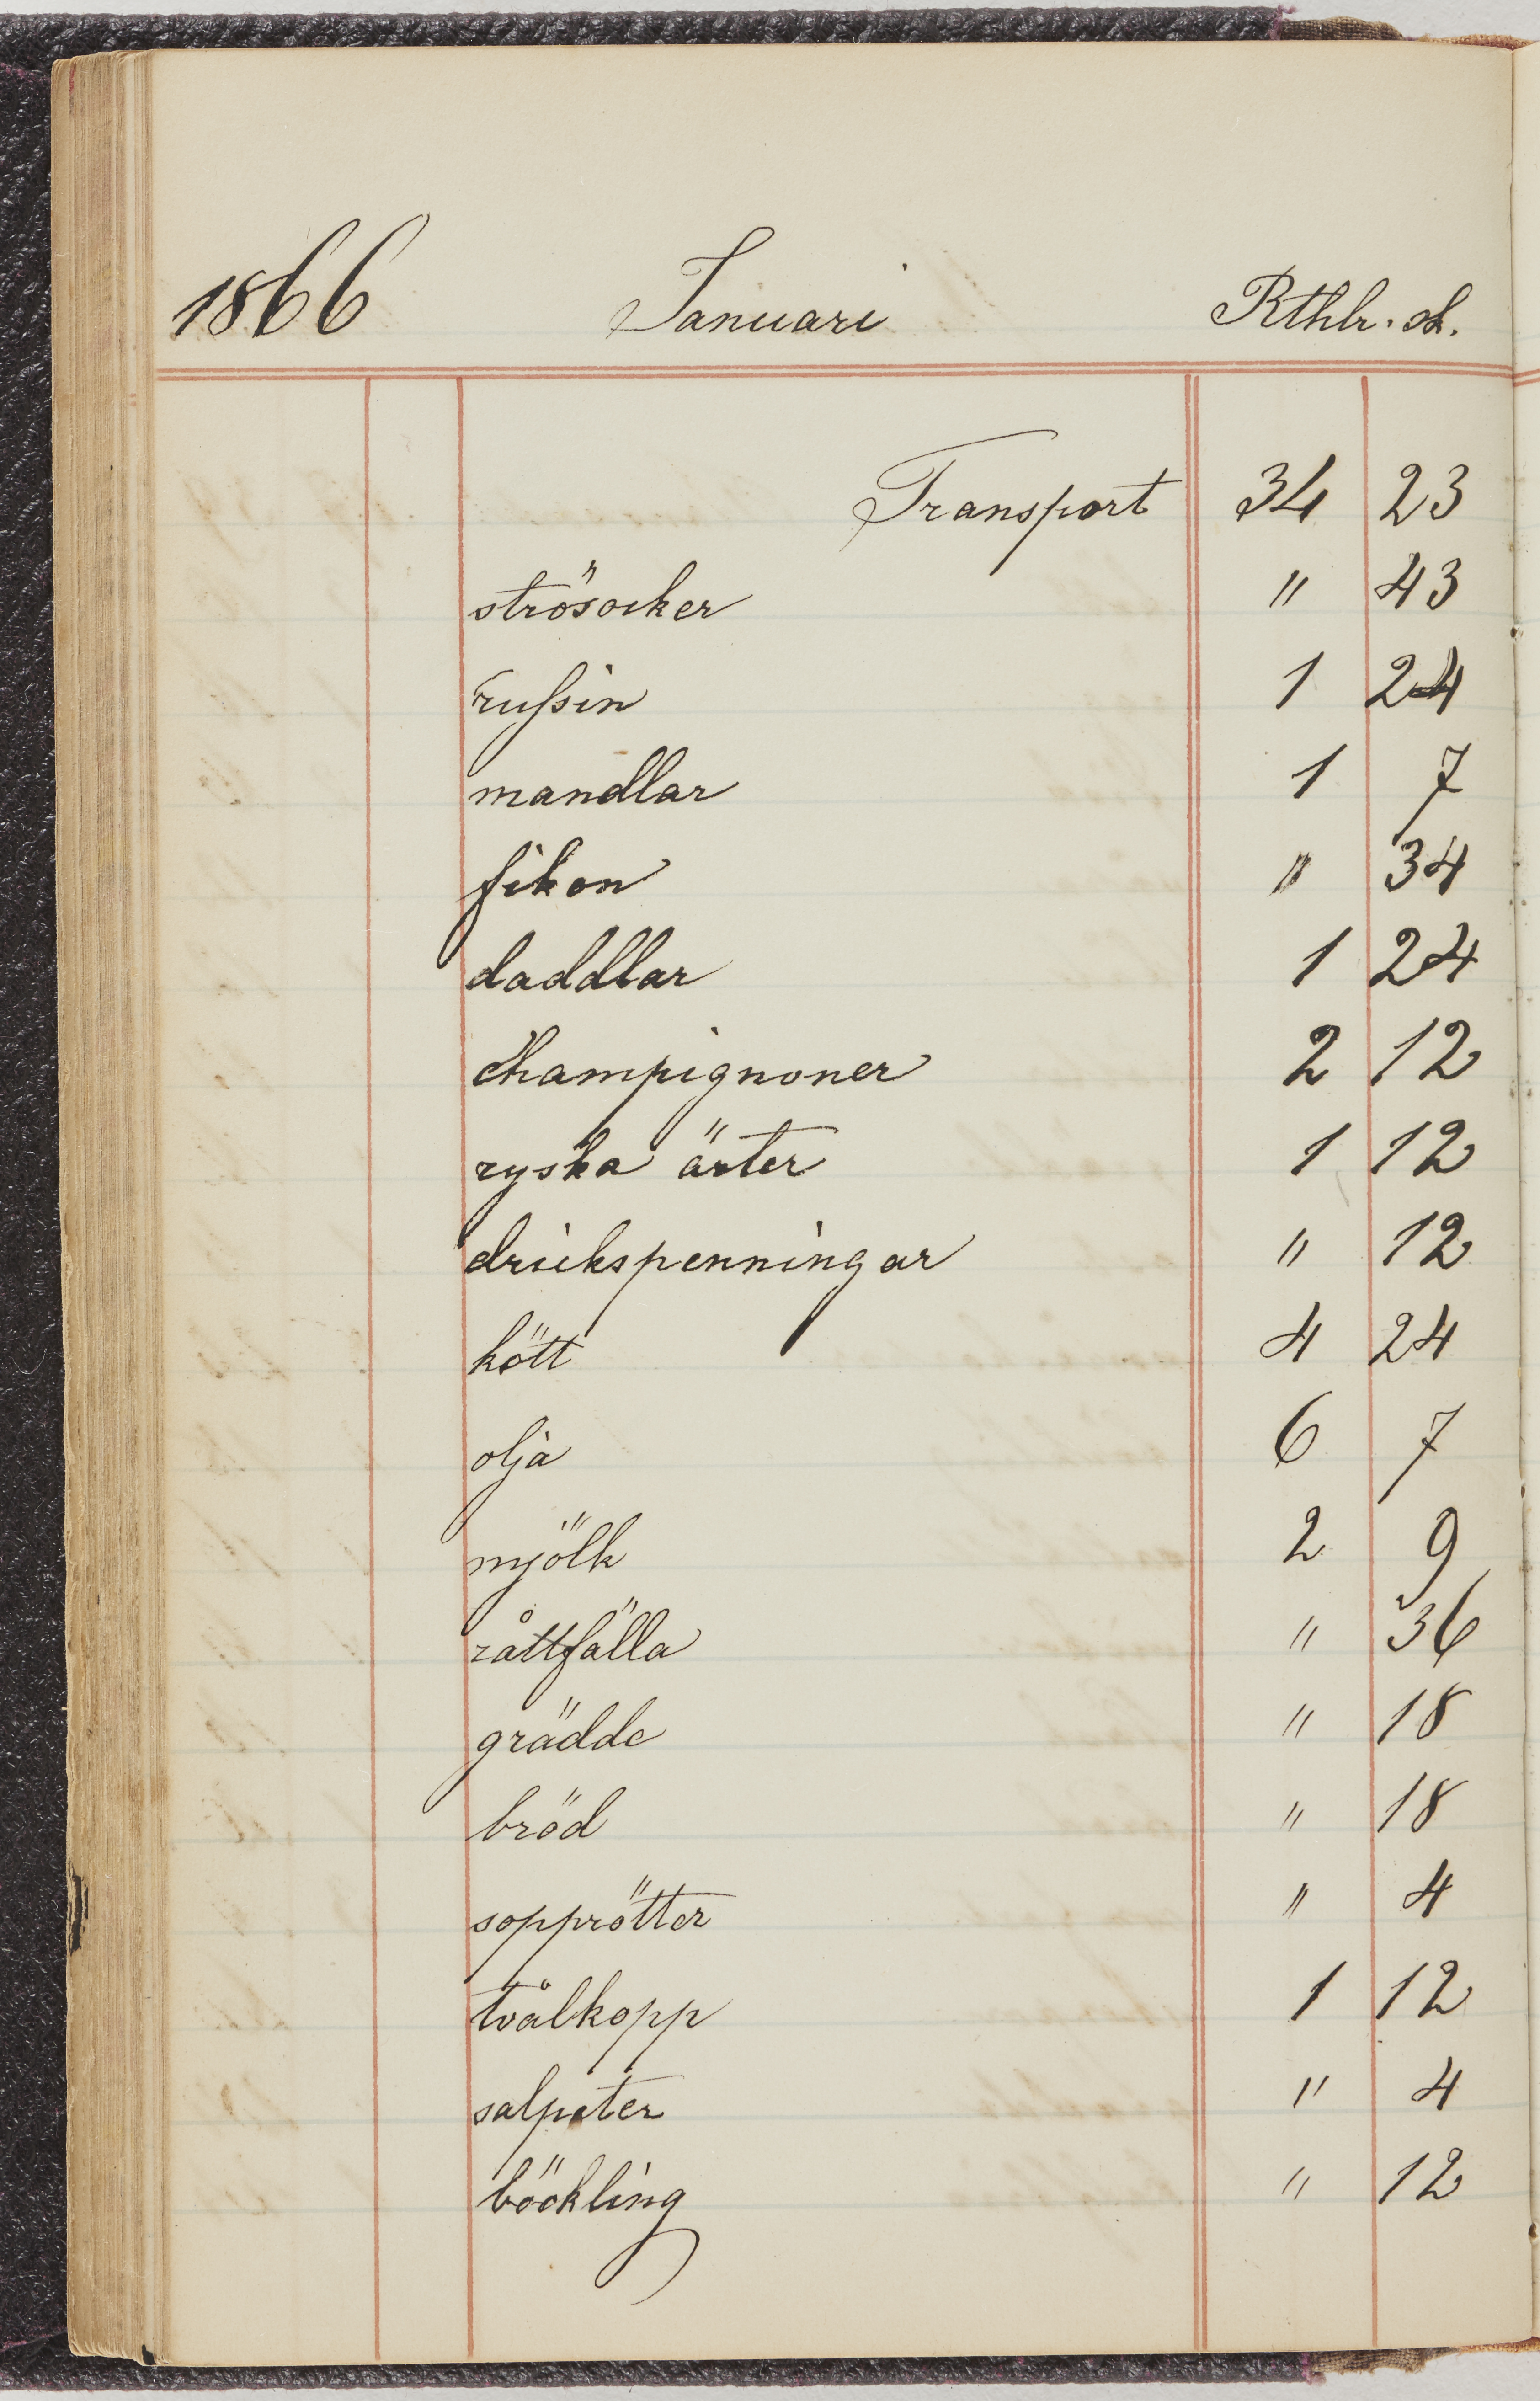 1866 Januari Rthlr. sk.
Transport 34 23
strösocker " 43
russin 1 24
mandlar 1 7
fikon " 34
daddlar 1 24
champignoner 2 12
ryska ärter 1 12
drickspenningar " 12
kött 4 24
olja 6 7
mjölk 2 9
råttfälla " 36
grädde " 18
bröd " 18
sopprötter " 4
tvålkopp 1 12
salpeter " 4
böckling " 12